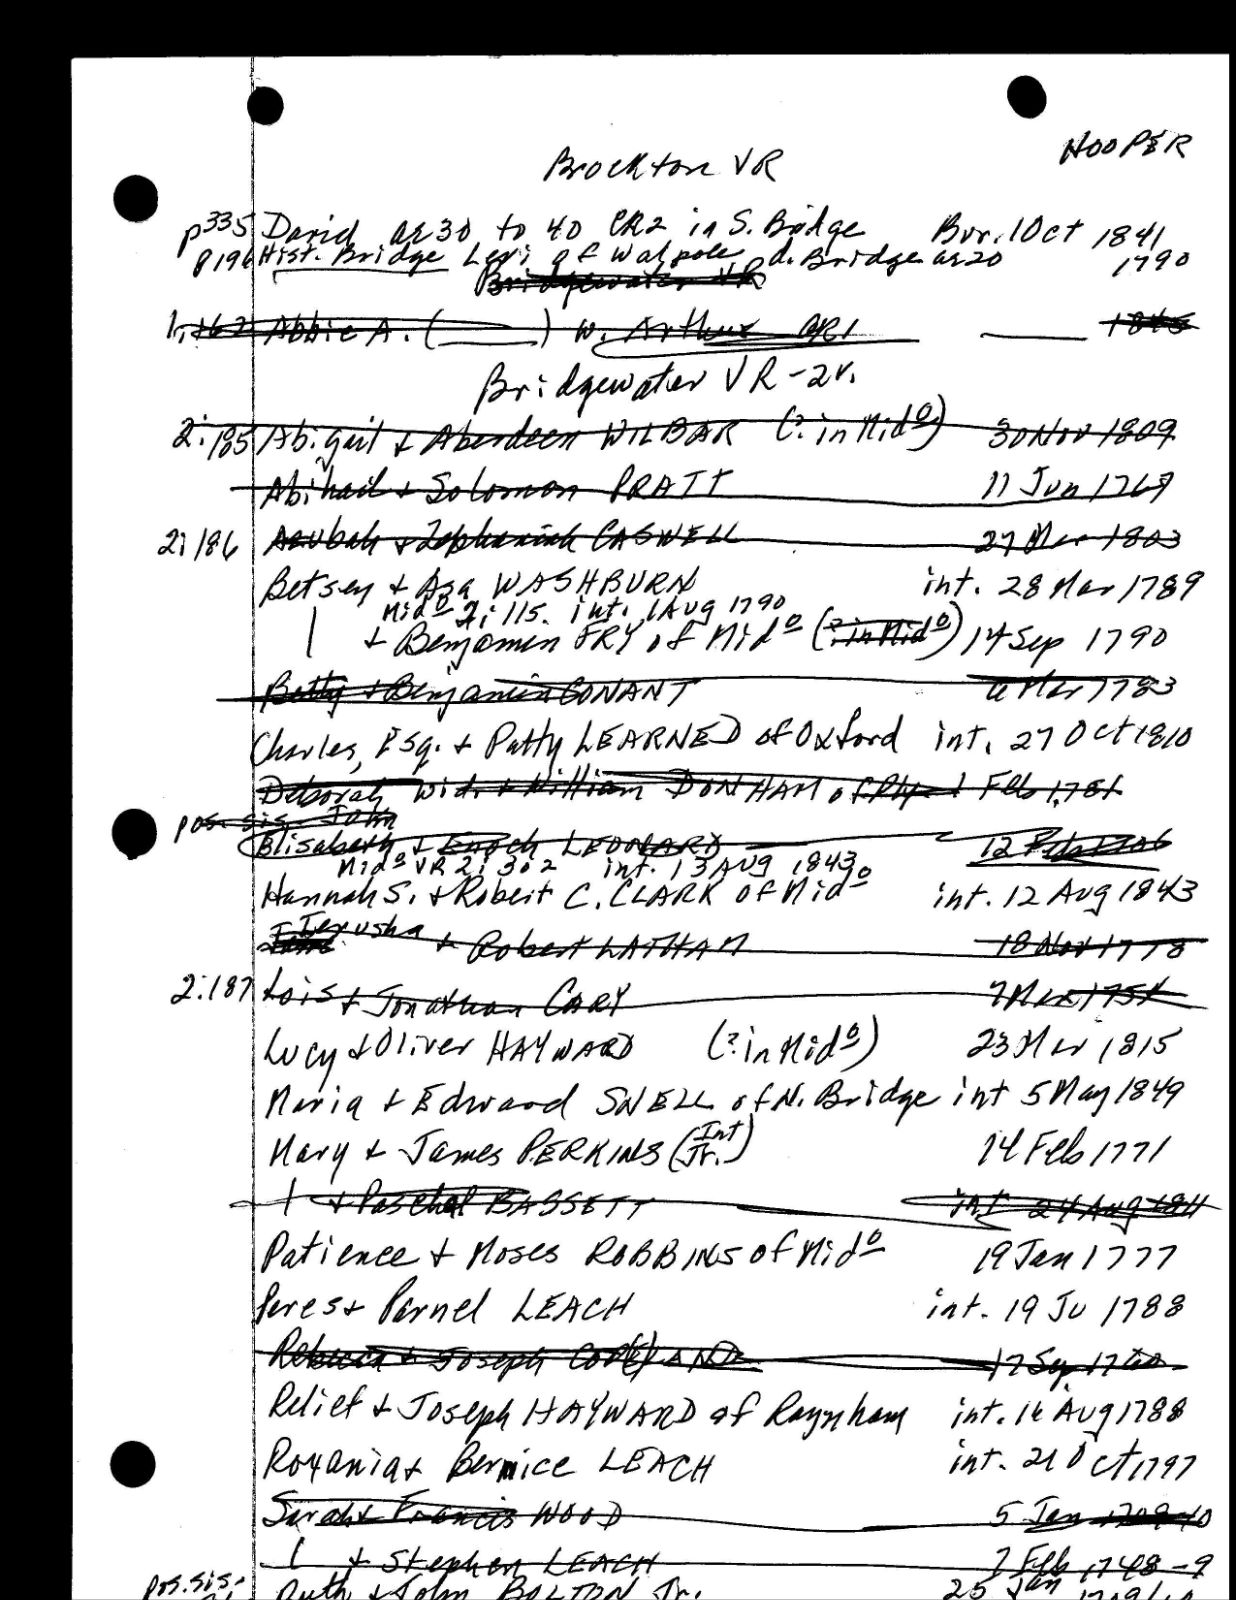 HOOPER
Brockton VR
p335 David ae 30 to 40 CR2 in S. Bridge Bur. 1 Oct 1841
p196 Hist. Bridge Levi of Walpole d. Bridge ae 20 1790
Bridgewater VR
1:162 Abbie A. (____) w. Arthur GR1 ____ 1845
Bridgewater VR-2v.
2:185 Abigail & Aberdeen WILBAR (? in Mido) 30 Nov 1809
Abihail & Solomon PRATT 11 Jun 1769
2:186 Azubah & Zephaniah CASWELL 27 Mar 1803
Betsey & Asa WASHBURN int. 28 Mar 1789
Mido 2:115. int. 1 Aug 1790
| & Benjamen FRY of Mido (? in Mido) 14 Sep 1790
Betty & Benjamin CONANT 6 Mar 1783
Charles, Esq. & Patty LEARNED of Oxford int. 27 Oct 1810
Deborah wid. & William DONHAM of 1 Feb
pos. sis. John
Elisabeth & Enoch LEONARD 12 Feb 1706
Mido VR 2:302 int. 13 Aug 1843
Hannah S. & Robert C. CLARK of Mido int. 12 Aug 1843
Jerusha & Robert LATHAM 18 Nov 1778
2:187 Lois & Jonathan CARY 7 Mar
Lucy & Oliver HAYWARD (? in Mido) 23 Mar 1815
Maria & Edward SNELL of N. Bridge int 5 May 1849
Mary & James PERKINS (Int Jr.) 14 Feb 1771
| & Paschal BASSETT int 24 Aug 1811
Patience & Moses ROBBINS of Mido 19 Jan 1777
Peres & Parnel LEACH int. 19 Ju 1788
Rebecca & Joseph COP(E)LAND 17 Sep 1760
Relief & Joseph HAYWARD of Raynham int. 16 Aug 1788
Roxania & Bernice LEACH int. 21 Oct 1797
Sarah & Francis WOOD 5 Jan 1709-10
| & Stephen LEACH 7 Feb 1748-9
pos. sis. Ruth & John BOLTON Jr. 25 Jan